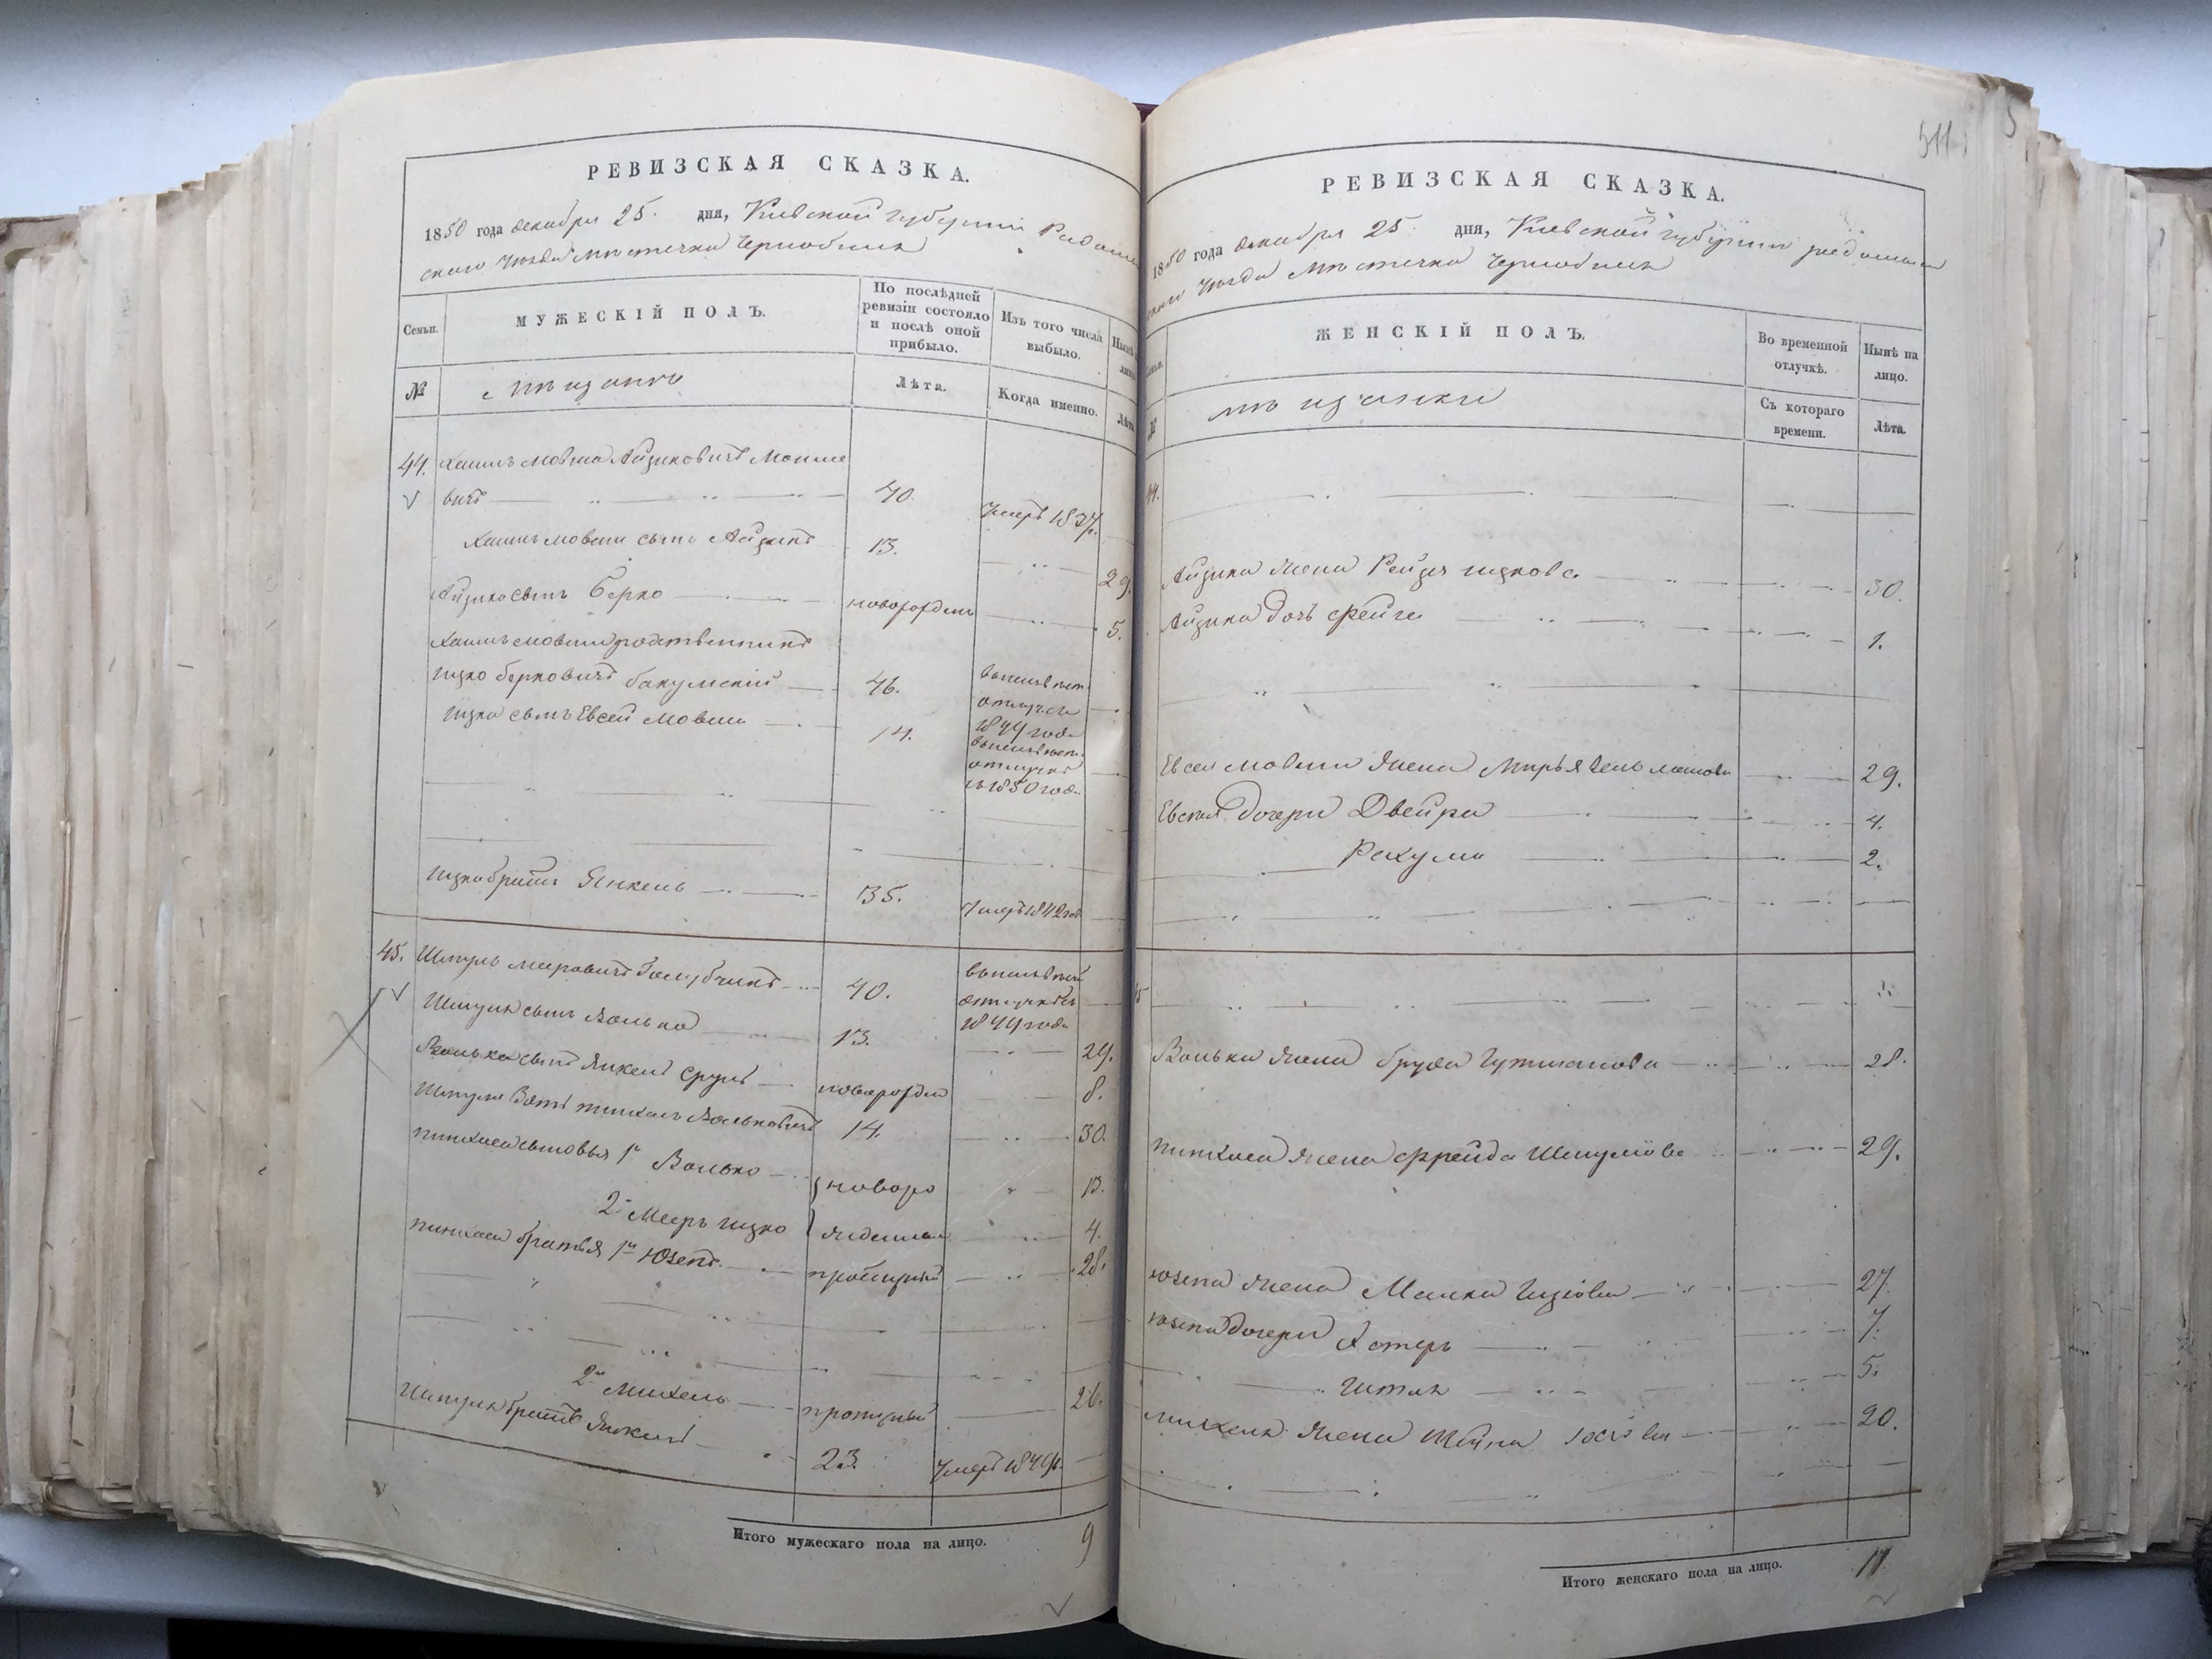 РЕВИЗСКАЯ СКАЗКА.
1850 года декабря 25. дня, Киевской губернии Радомы
скаго уезда местечка Чернобыля
Семьи.
МУЖЕСКІЙ ПОЛЪ.
По послѣдней ревизіи состояло и послѣ оной прибыло.
Изъ того числа выбыло.
№
мещане
Лѣта.
Когда именно.
Лѣта
44. Хаимъ Мовша Айзиковичъ
вичъ 40. умеръ 1837
Хаимъ Мовши сынъ Айзикъ 13. 29.
Айзика сынъ Берко новорожден 5.
Хаимъ Мовши родственникъ
Ицко Берковичъ 46.
отлучке
1849 года
Ицка сынъ Евсей Мовша 14.
отлучке
съ 1850 года
Ицка братъ Янкель 35. умеръ 1842 год
45. Шмуль Меировичъ Голубчикъ 40.
отлучке съ
1849 года
Шмуля сынъ Волько 13. 29.
Волька сынъ Янкель Сруль новорожден 8.
Шмуля зять Пинхасъ Вольковичъ 14. 30.
Пинхаса сыновья 1й Волько новоро 13.
2й Мееръ Ицко жденные 4.
Пинхаса братья 1й Юзепъ пропущный 28.
2й Михель пропущный 26.
Шмуля братъ Янкель 23. умеръ 1849
Итого мужескаго пола на лицо. 9
511
РЕВИЗСКАЯ СКАЗКА.
1850 года декабря 25 дня, Киевской губернии радомысл
скаго уезда местечка Чернобыля
ЖЕНСКІЙ ПОЛЪ.
Во временной отлучкѣ.
Нынѣ на лицо.
№
мещанки
Съ котораго времени.
Лѣта.
44.
Айзика жена Рейзя Ицкова 30.
Айзика дочь Фейга 1.
Евсея Мовши жена Мирья 29.
Евсея дочери Двейра 4.
Рахума 2.
45
Волька жена Бруха Гутманова 28.
Пинхаса жена Фрейда Шмулова 29.
Юзепа жена Малка Ицкова 27.
Юзепа дочери Эстеръ 7.
Гитля 5.
Михеля жена Шейна 20.
Итого женскаго пола на лицо. 11